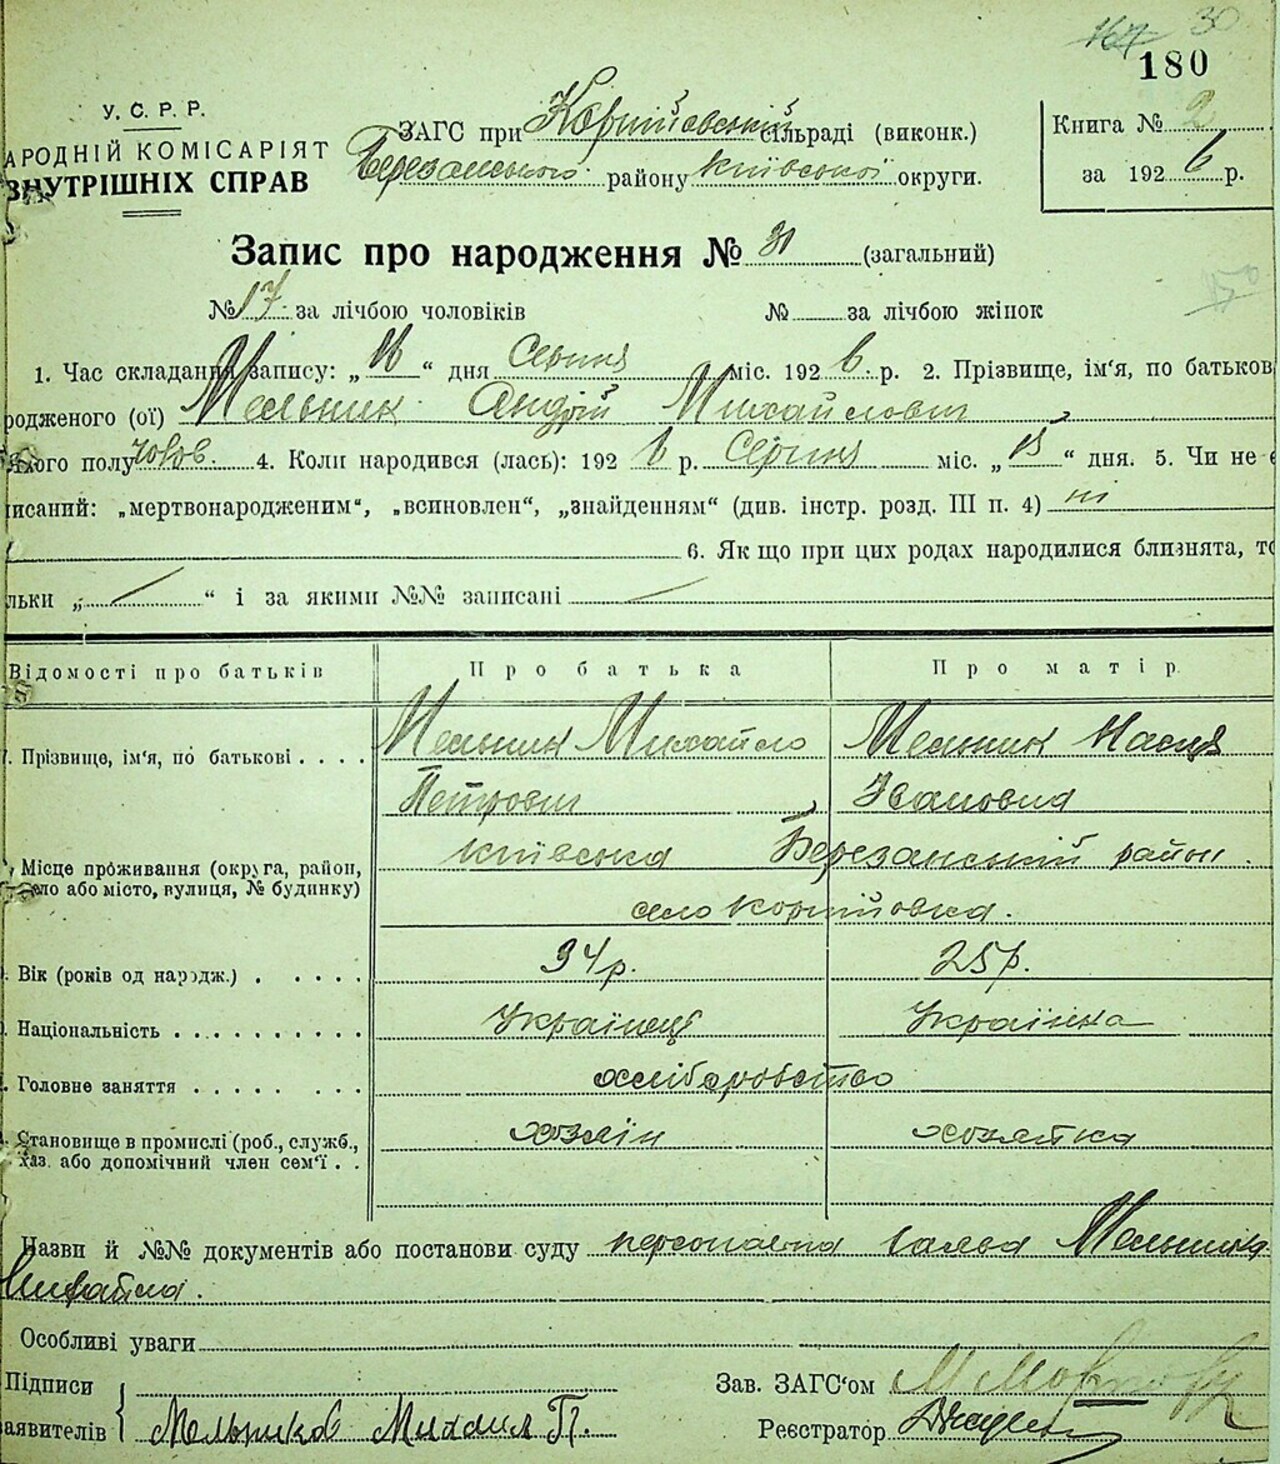 167 30
180
У. С. Р. Р.
АРОДНІЙ КОМІСАРІЯТ
ВНУТРІШНІХ СПРАВ
ЗАГС при Корніївській сільраді (виконк.)
Березанського району Київської округи.
Книга № 2
за 1926 р.
Запис про народження № 31 (загальний)
№ 17 за лічбою чоловіків № за лічбою жінок
1. Час складання запису: „16“ дня Серпня міс. 1926 р. 2. Прізвище, ім'я, по батьков
родженого (ої) Мельник Андрій Михайлович
якого полу чолов. 4. Коли народився (лась): 1926 р. Серпня міс. „15“ дня. 5. Чи не є
писаний: „мертвонародженим“, „всиновлен“, „знайденням“ (див. інстр. розд. III п. 4) ні
6. Як що при цих родах народилися близнята, то
льки „ “ і за якими №№ записані
Відомості про батьків Про батька Про матір
7. Прізвище, ім'я, по батькові Мельник Михайло Мельник Настя
Петрович Івановна
Місце проживання (округа, район, Київська Березанський район.
село або місто, вулиця, № будинку)
село Корніївка.
Вік (років од народж.) 34 р. 25 р.
Національність Українець Українка
Головне заняття хліборобство
Становище в промислі (роб., служб., хозяїн хозяйка
хаз. або допомічний член сем'ї
Назви й №№ документів або постанови суду персональна Мельника
Михайла.
Особливі уваги
Підписи
Зав. ЗАГС'ом
аявителів Мельников Михаил П.
Реєстратор